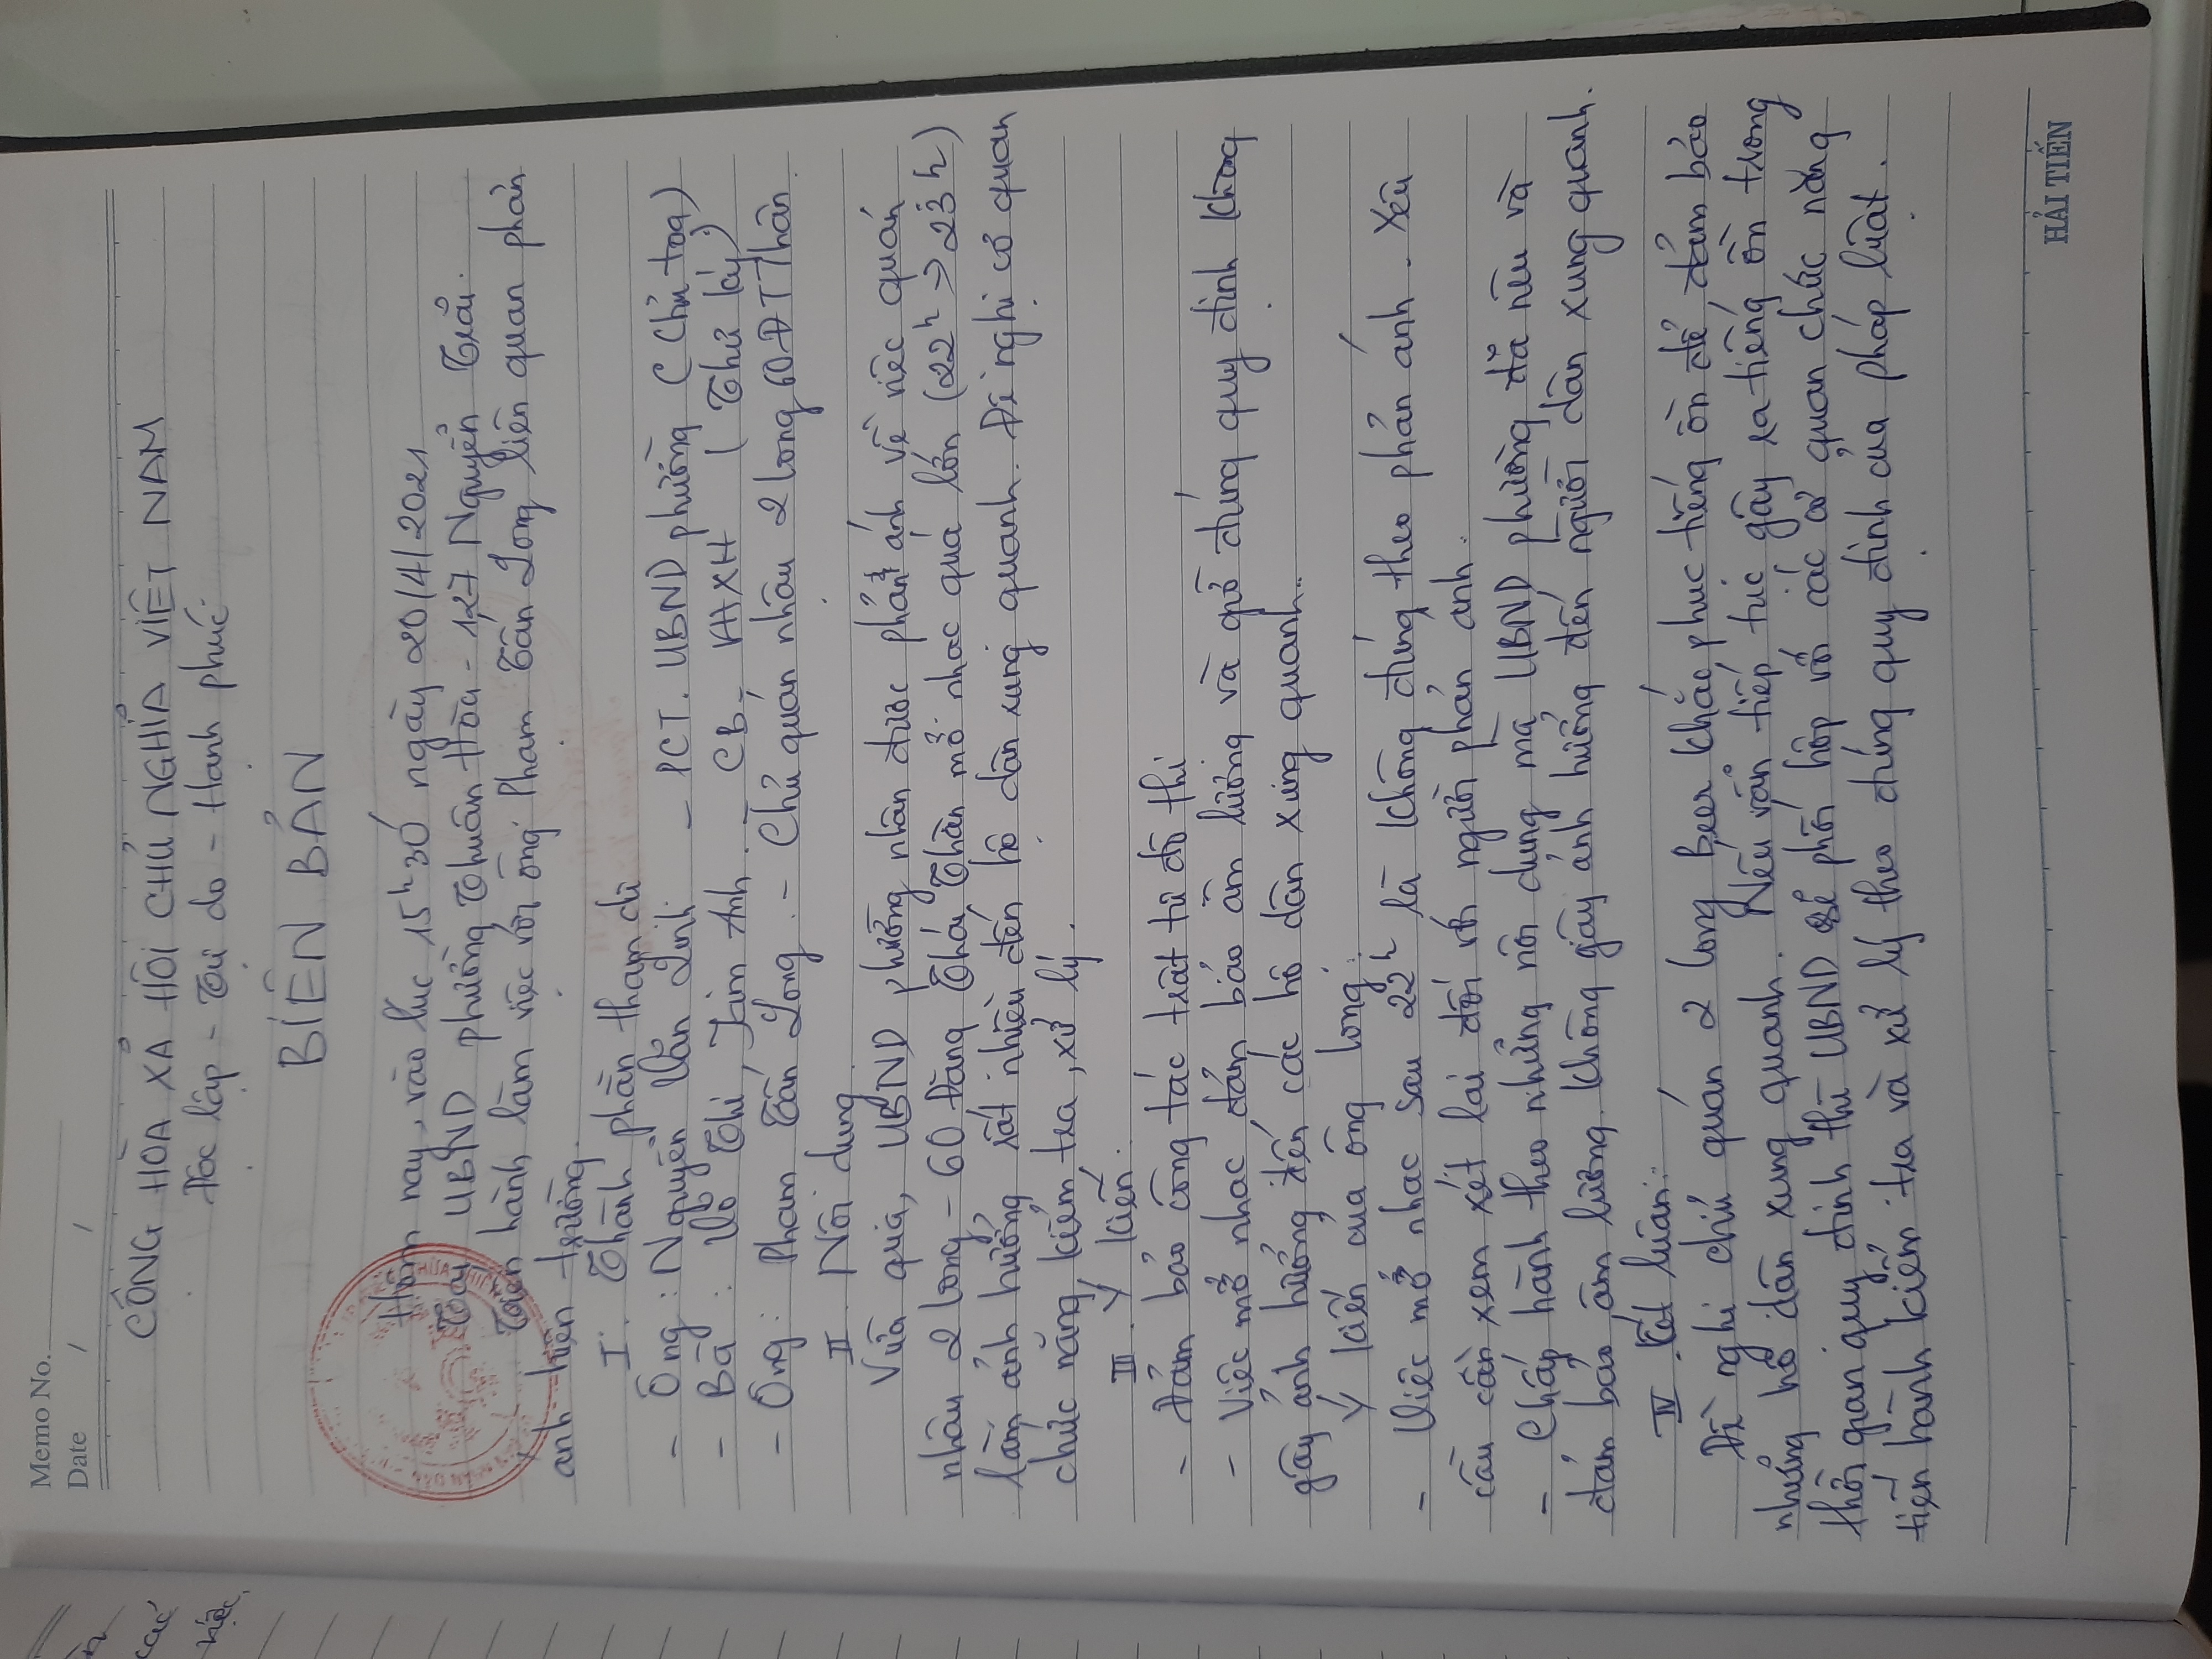 Memo No.
Date / /
CỘNG HÒA XÃ HỘI CHỦ NGHĨA VIỆT NAM
Độc lập - Tự do - Hạnh phúc
BIÊN BẢN
Hôm nay, vào lúc 15h30 ngày 20/4/2021
Tại UBND phường Thuận Hòa - 127 Nguyễn Trãi.
Tiến hành làm việc với ông Phạm Tấn Long liên quan phản
ánh hiện trường.
I. Thành phần tham dự
- Ông: Nguyễn Văn Linh - PCT. UBND phường (Chủ tọa)
- Bà: Võ Thị Kim Anh - CB. VHXH (Thư ký)
- Ông: Phạm Tấn Long - Chủ quán nhậu 2 long 60 ĐTThân
II. Nội dung
Vừa qua, UBND phường nhận được phản ánh về việc quán
nhậu 2 long - 60 Đặng Thái Thân mở nhạc quá lớn (22h => 23h)
làm ảnh hưởng rất nhiều đến hộ dân xung quanh. Đề nghị cơ quan
chức năng kiểm tra, xử lý.
III. Ý kiến
- Đảm bảo công tác trật tự đô thị
- Việc mở nhạc đảm bảo âm lượng và giờ đúng quy định không
gây ảnh hưởng đến các hộ dân xung quanh.
Ý kiến của ông long:
- Việc mở nhạc sau 22h là không đúng theo phản ánh. Yêu
cầu cần xem xét lại đối với người phản ánh.
- Chấp hành theo những nội dung mà UBND phường đã nêu và
đảm bảo âm lượng. Không gây ảnh hưởng đến người dân xung quanh.
IV. Kết luận:
Đề nghị chủ quán 2 long Beer khắc phục tiếng ồn để đảm bảo
những hộ dân xung quanh. Nếu vẫn tiếp tục gây ra tiếng ồn trong
thời gian quy định thì UBND sẽ phối hợp với các cơ quan chức năng
tiến hành kiểm tra và xử lý theo đúng quy định của pháp luật.
HẢI TIẾN